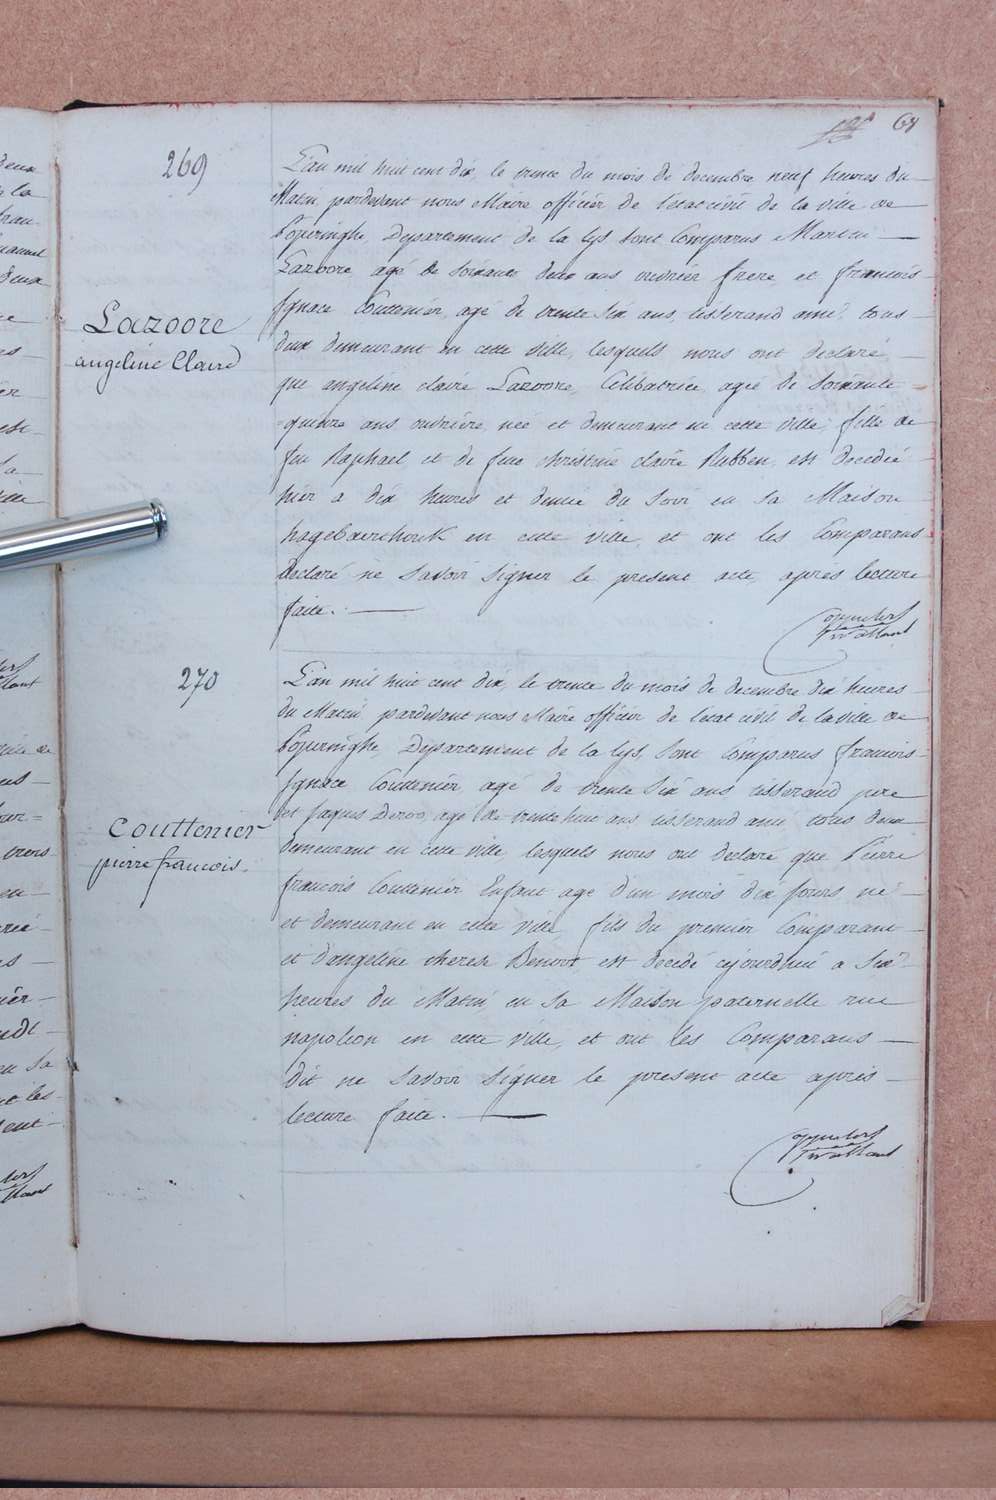 64
269
Lazoore
angeline Claire
L'an mil huit cent dix, le trente du mois de decembre neuf heures du
Matin, pardevant nous Maire officier de l'etat civil de la ville de
Poperinghe, Departement de la Lys, sont Comparus Martin
Lazoore, agé de soixante deux ans ouvrier frere et francois
Ignace Couttenier, agé de trente six ans, tisserand ami, tous
deux demeurant en cette ville, lesquels nous ont declaré
que angeline claire Lazoore, Celibatrice, agée de soixante
quinze ans ouvrière, née et demeurant en cette ville, fille de
feu Raphael et de feue christine claire Rubben, est decedée
hier a dix heures et demie du soir en sa Maison
hagebaerthouk en cette ville, et ont les Comparans
declaré ne savoir signer le present acte, apres lecture
faite.
270
Couttenier
pierre francois.
L'an mil huit cent dix, le trente du mois de decembre dix heures
du Matin pardevant nous Maire officier de l'etat civil de la ville de
Poperinghe, Departement de la lys, sont Comparus francois
Ignace Couttenier, agé de trente six ans tisserand pere
et Jaques Deroo, agé de trente huit ans tisserand ami tous deux
demeurant en cette ville lesquels nous ont declaré que Pierre
francois Couttenier Enfant agé d'un mois dix jours né
et demeurant en cette ville fils du premier Comparant
et d'angeline therese Benoot, est decedé cejourdhui a six
heures du Matin, en sa Maison paternelle rue
napoleon en cette ville, et ont les Comparans
dit ne savoir signer le present acte apres
lecture faite.